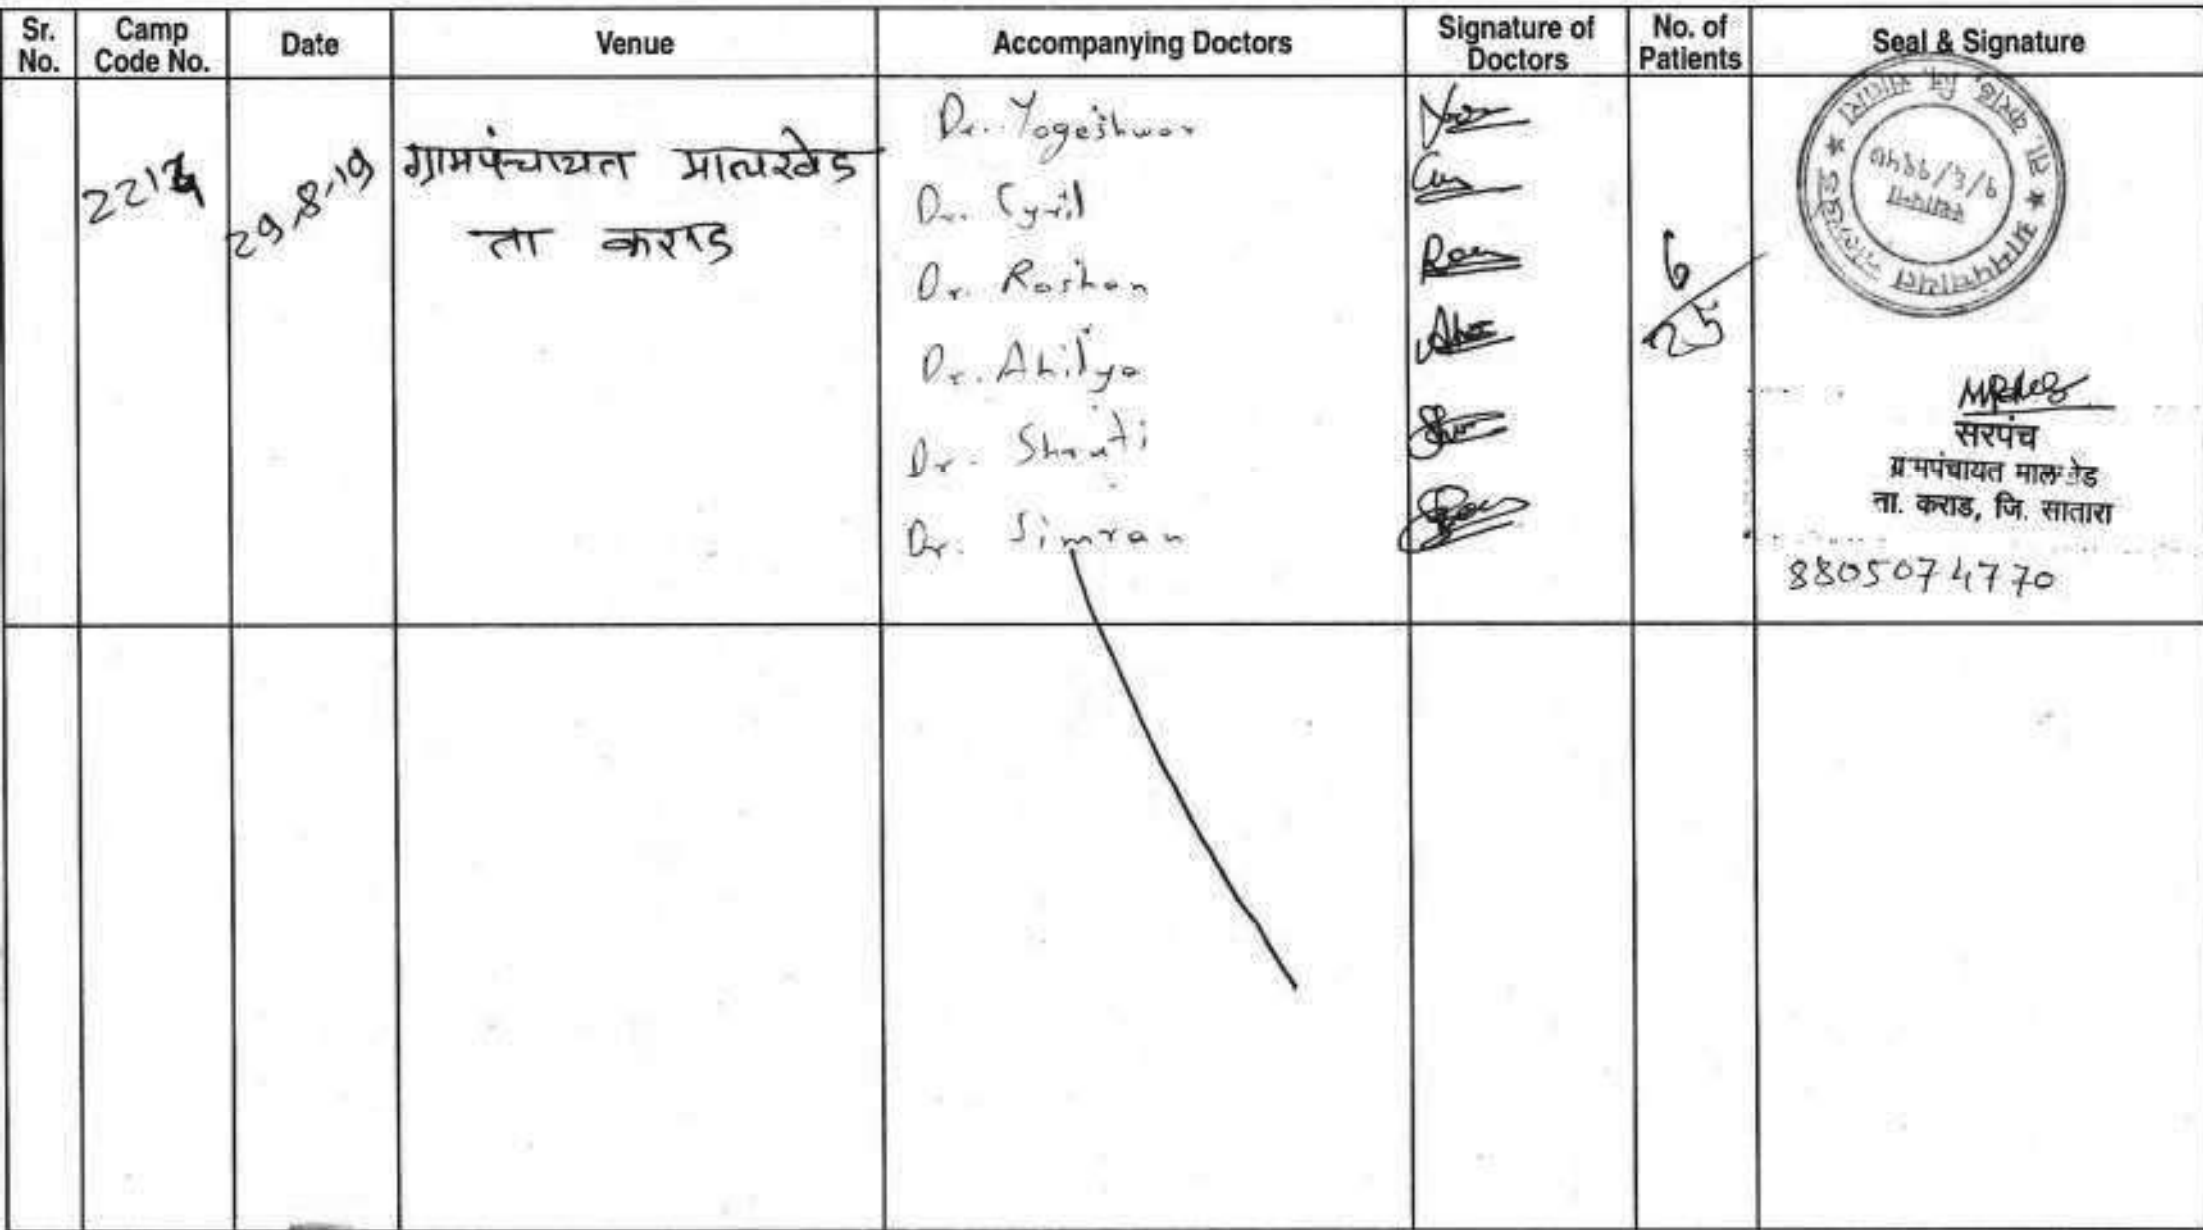 Sr. No.
Camp Code No.
Date
Venue
Accompanying Doctors
Signature of Doctors
No. of Patients
Seal & Signature
29.8.19
ग्रामपंचायत मालखेड
ता कराड
Dr. Yogeshwar
Dr. Cyril
Dr. Roshan
Dr. Ahilya
Dr. Shruti
Dr. Simran
6/25
सरपंच
ग्रामपंचायत मालखेड
ता. कराड, जि. सातारा
8805074770